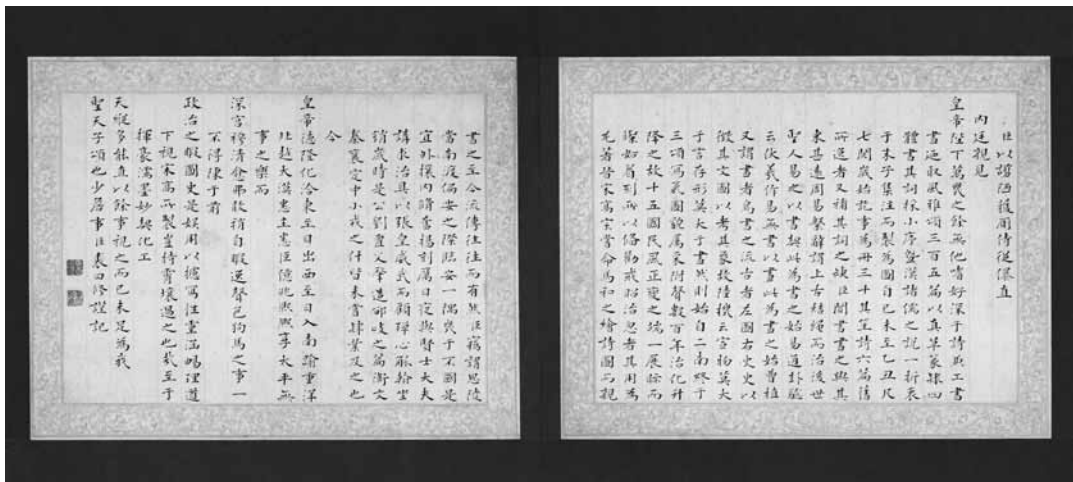 臣以謭陋獲厠侍從儤直
內廷親見
皇帝陛下萬幾之餘無他嗜好深于詩兼工書
書迤取風雅頌三百五篇以真草篆隸四
體書其詞採小序暨漢諸儒之說一折衷
于朱子集注而製為圖自己未至乙丑凡
七閱歲始訖事為冊三十其笙詩六篇舊
所逸者又補其詞之缺臣聞書之與其
來甚遠周易繫辭謂上古結繩而治後世
聖人易之以書契此為書之始易通卦驗
云伏羲作易無書以畫此為畫之始曹植
又謂畫者鳥書之流古者左圖右史史以
徵其文圖以考其象故陸機云宣物莫大
于言存形莫大于畫我則始自二南終于
三頌寫氣圖貌屬采附聲數百年治化升
降之故十五國民風正變之端一展睞而
燦如眉列所以備勸戒昭治忽者其用為
尤著昔宋高宗嘗命馬和之繪詩圖而親
書之至今流傳往往而有然臣竊謂思陵
當南渡偏安之際臨安一隅幾于不國是
宜外攘內脩奮揚刻厲日夜與賢士大夫
講求治具以張皇威武而顧殫心脈翰坐
銷歲時是公劉亶父肇造邠岐之篇衛文
秦襄定中小戎之什皆未嘗肄業及之也
今
皇帝德隆化洽東至日出西至日入南踰重洋
北越大漠悉主悉臣億兆熙熙享太平無
事之樂而
深宮穆清愈弗敢稍自暇逸聲色狗馬之事一
不得陳于前
政治之暇圖史是娛用以攄寫性靈涵暢理道
下視宋高所製豈待霄壤過之也哉至于
揮豪濡墨妙契化工
天縱多能直以餘事視之而已未足為我
聖天子頌也少詹事臣裘曰修謹記